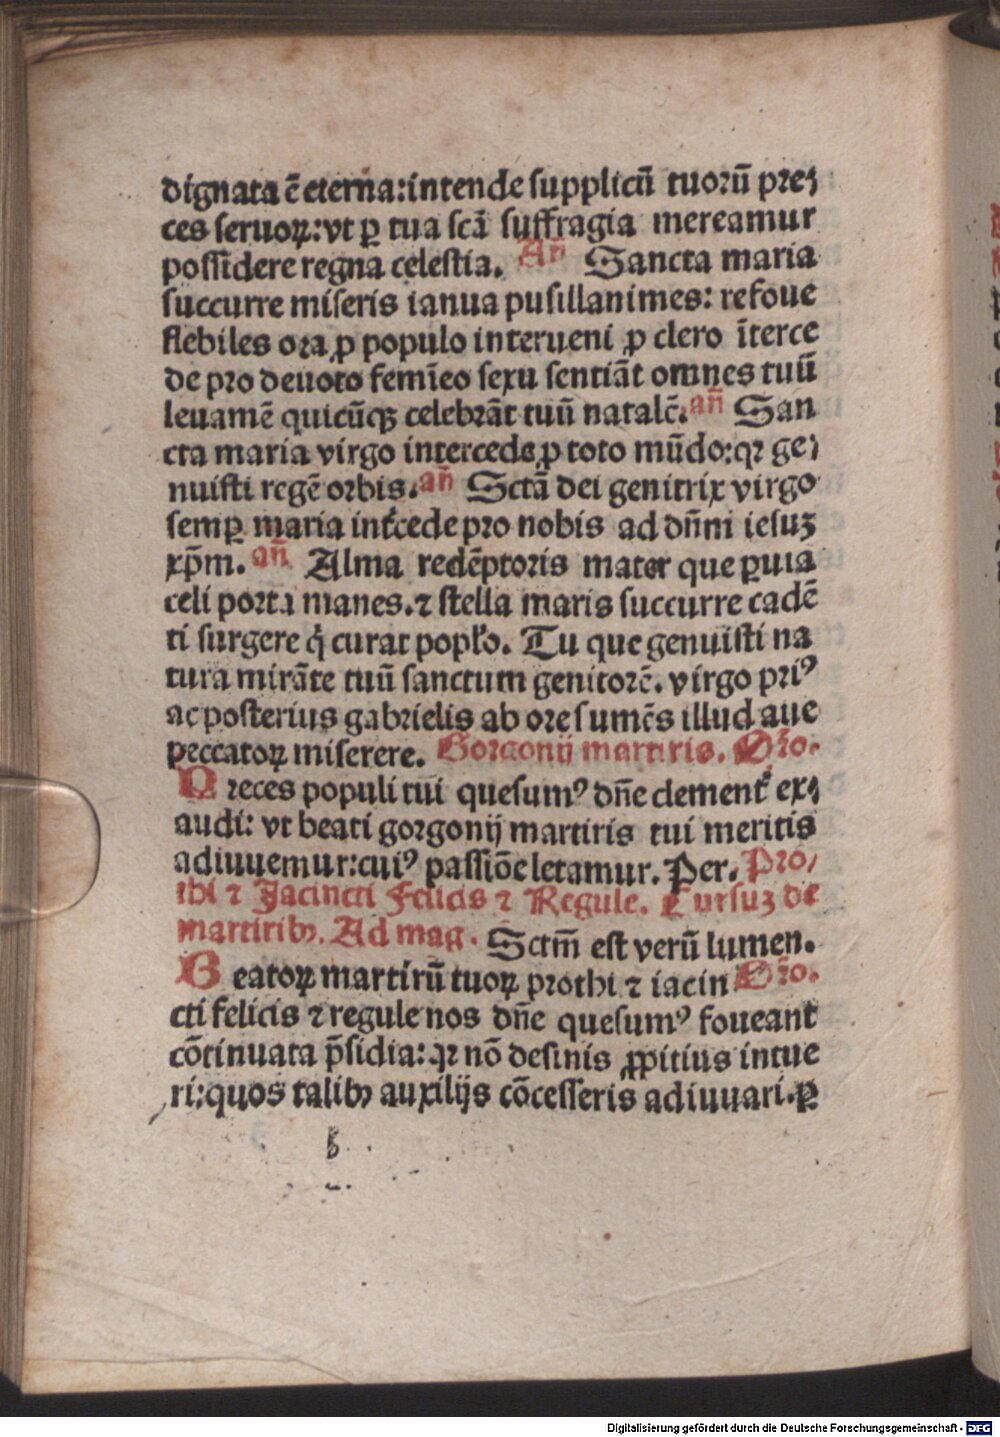 dignata ē eterna:intende supplicū tuorū pre⸗
ces seruoꝝ:vt ꝑ tua scā suffragia mereamur
possidere regna celestia. Añ Sancta maria
succurre miseris ianua pusillanimes: refoue
flebiles ora ꝓ populo interueni ꝓ clero īterce
de pro deuoto femīeo sexu sentiāt omnes tuū
leuamē quicūqꝫ celebrāt tuū natalē. añ San
cta maria virgo intercede ꝓ toto mūdo:qꝛ ge⸗
nuisti regē orbis. añ Sctā dei genitrix virgo
semꝑ maria int̄cede pro nobis ad dn̄ni iesuꝫ
xp̄m. añ Alma redēptoris mater que ꝑuia
celi porta manes.⁊ stella maris succurre cadē
ti surgere q̇ curat popl̓o. Tu que genuisti na
tura mirāte tuū sanctum genitorē. virgo priꝰ
ac posterius gabrielis ab ore sumēs illud aue
peccatoꝝ miserere. Gorgonij martiris. Or̄o.
Preces populi tui quesumꝰ dn̄e clement̓ ex⸗
audi: vt beati gorgonij martiris tui meritis
adiuuemur:cuiꝰ passiōe letamur. Per. Pro⸗
thi ⁊ Jacincti Felicis ⁊ Regule. Cursuꝫ de
martiribꝰ. Ad mag. Sctm̄ est verū lumen.
Beatoꝝ martirū tuoꝝ prothi ⁊ iacin Or̄o.
cti felicis ⁊ regule nos dn̄e quesumꝰ foueant
cōtinuata p̄sidia: qꝛ nō desinis ꝓpitius intue
ri:quos talibꝰ auxilijs cōcesseris adiuuari.ꝑ
Digitalisierung gefördert durch die Deutsche Forschungsgemeinschaft - DFG